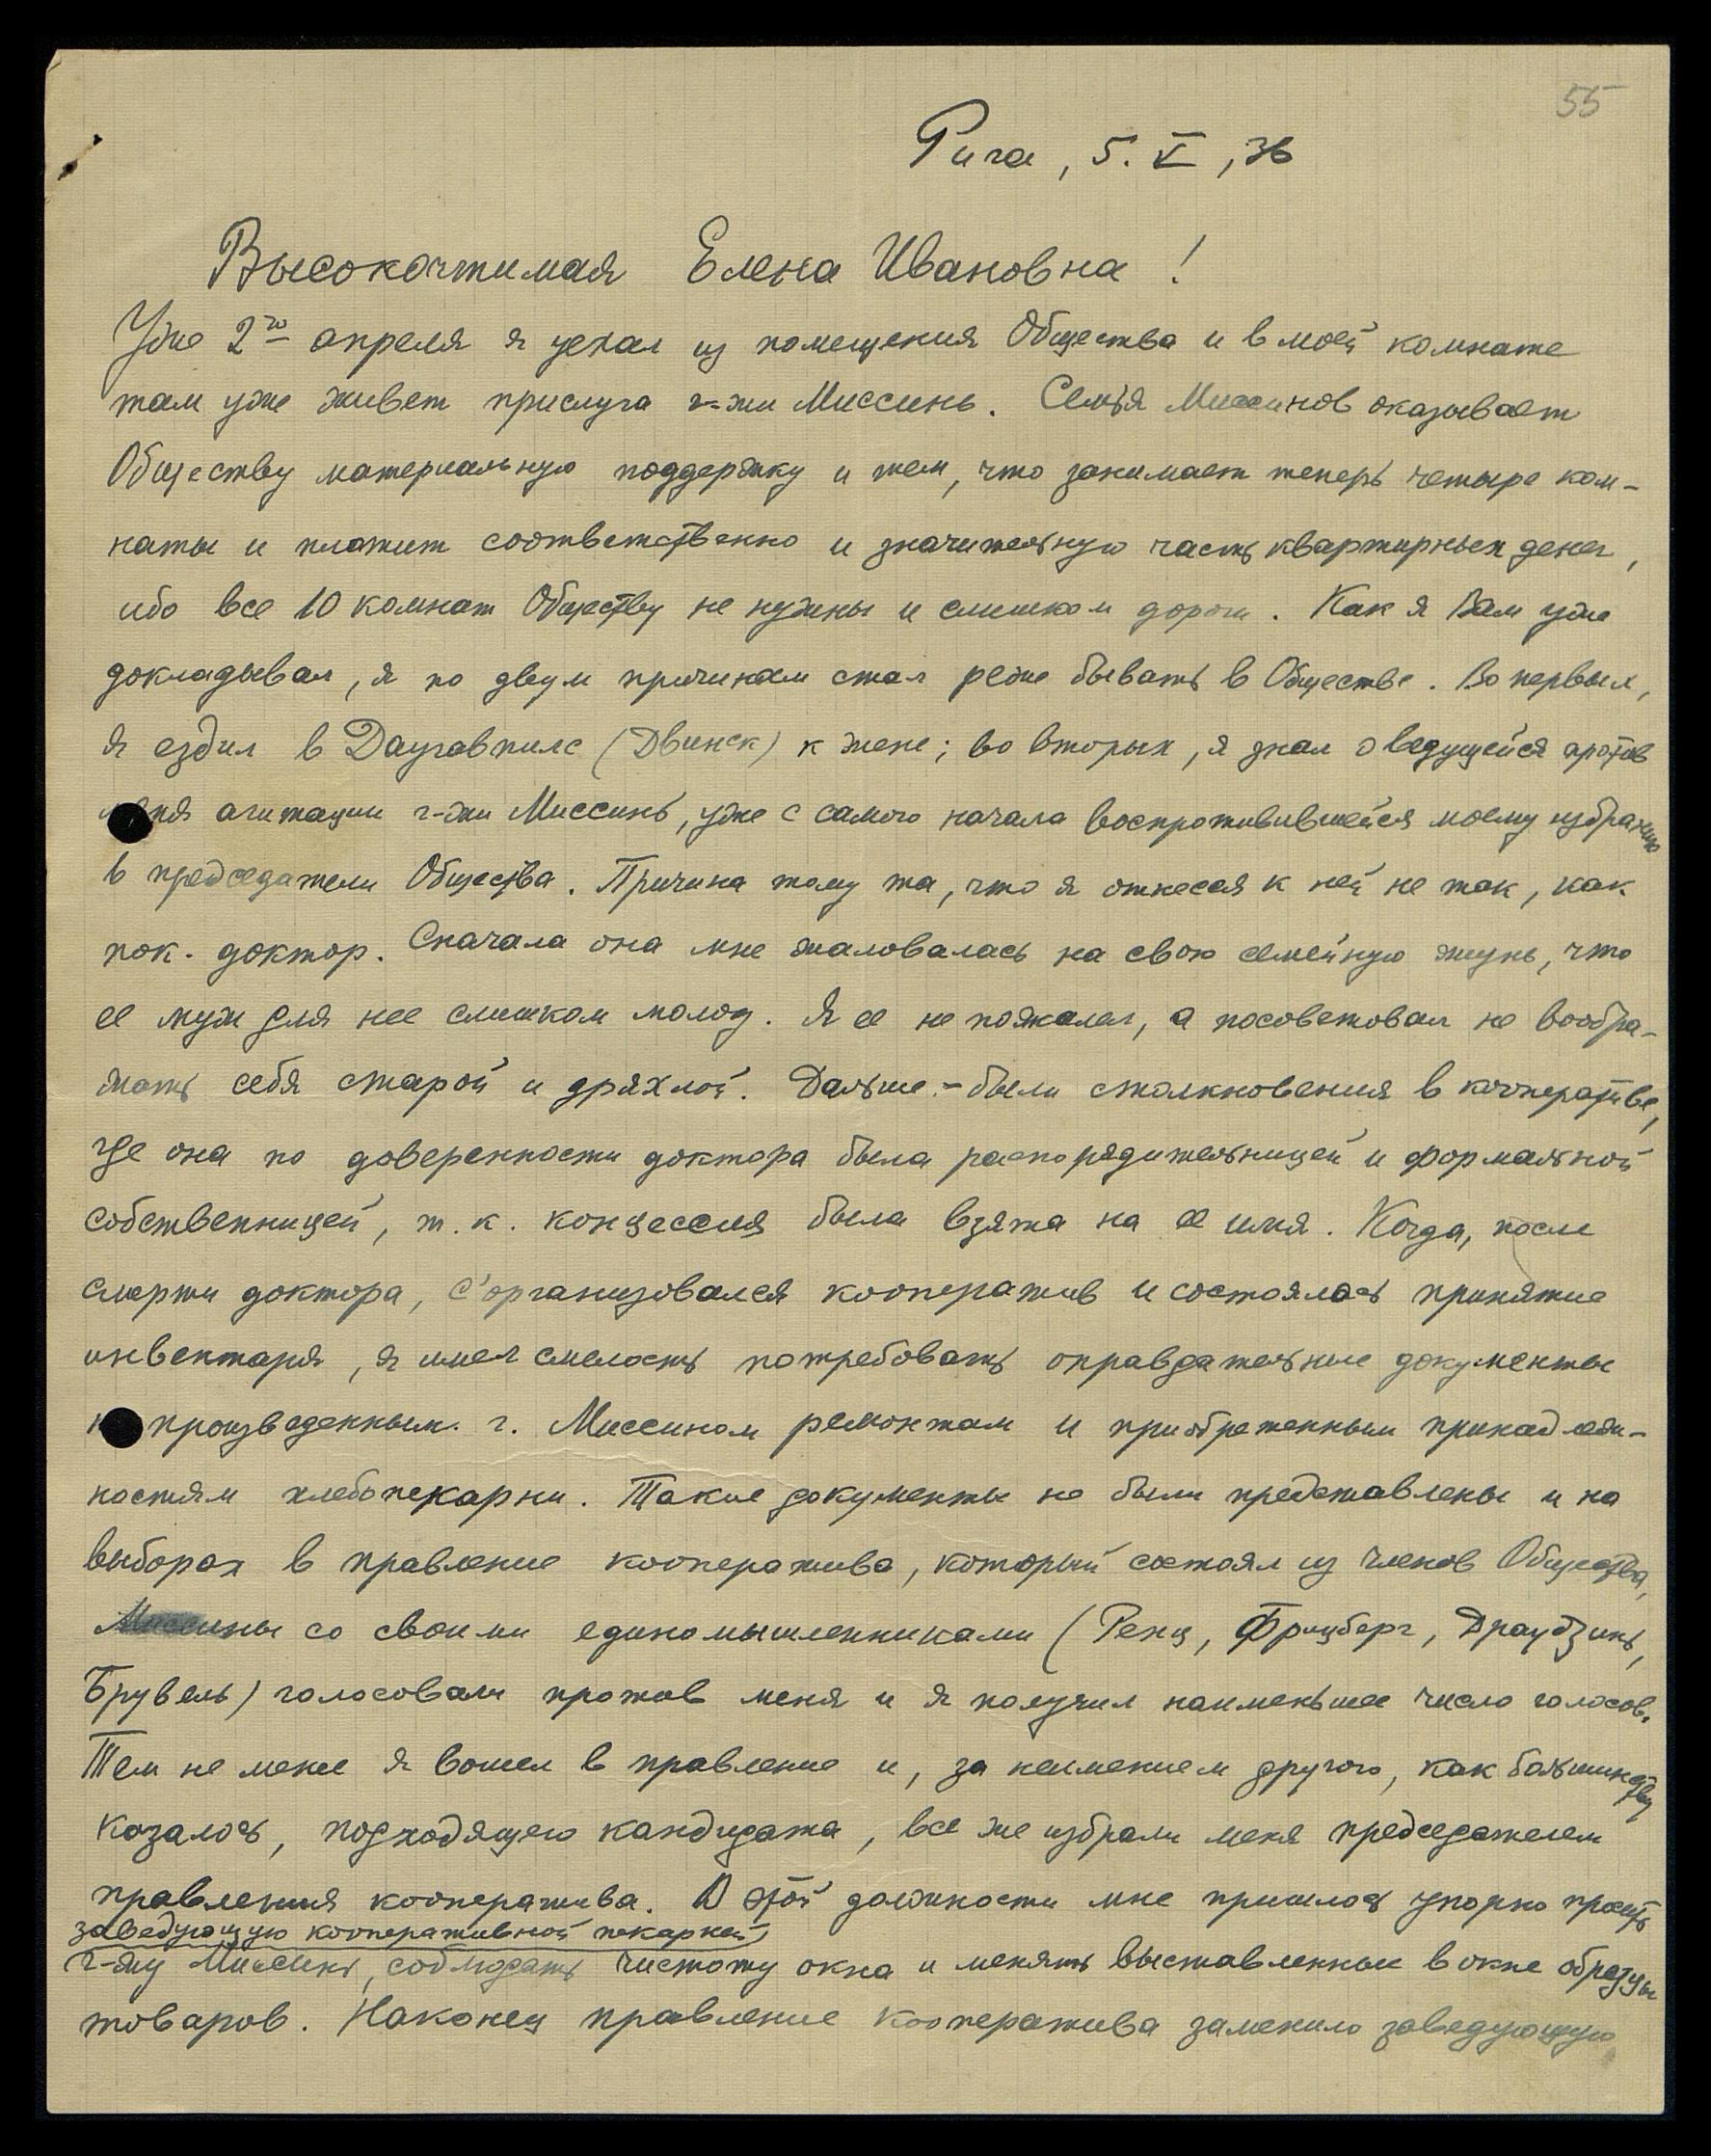 55
Рига, 5. V, 36
Высокочтимая Елена Ивановна!
Уже 2го апреля я уехал из помещения Общества и в моей комнате
там уже живет прислуга г-жи Миссинь. Семья Миссинов оказывает
Обществу материальную поддержку и тем, что занимает теперь четыре ком-
наты и платит соответственно и значительную часть квартирных денег,
ибо все 10 комнат Обществу не нужны и слишком дороги. Как я Вам уже
докладывал, я по двум причинам стал реже бывать в Обществе. Во первых,
я ездил в Даугавпилс (Двинск) к жене; во вторых, я знал о ведущейся против
меня агитации г-жи Миссинь, уже с самого начала воспротивившейся моему избранию
в председатели Общества. Причина тому та, что я отнесся к ней не так, как
пок. доктор. Сначала она мне жаловалась на свою семейную жизнь, что
ее муж для нее слишком молод. Я ее не пожалел, а посоветовал не вообра-
жать себя старой и дряхлой. Дальше - были столкновения в кооперативе,
где она по доверенности доктора была распорядительницей и формальной
собственницей, т. к. концессия была взята на ее имя. Когда, после
смерти доктора, с'организовался кооператив и состоялось принятие
инвентаря, я имел смелость потребовать оправдательные документы
произведенным г. Миссином ремонтам и приобретенным принадлеж-
ностям хлебопекарни. Такие документы не были представлены и на
выборах в правление кооператива, который состоял из членов Общества,
Миссины со своими единомышленниками (Ренц, Фрицберг, Драудзинь,
Брувель) голосовали против меня и я получил наименьшее число голосов.
Тем не менее я вошел в правление и, за неимением другого, как большинству
казалось, подходящего кандидата, все же избрали меня председателем
правления кооператива. В этой должности мне пришлось упорно просить
заведующую кооперативной пекарней,
г-жу Миссинь, соблюдать чистоту окна и менять выставленные в окне образцы
товаров. Наконец правление кооператива заменило заведующую